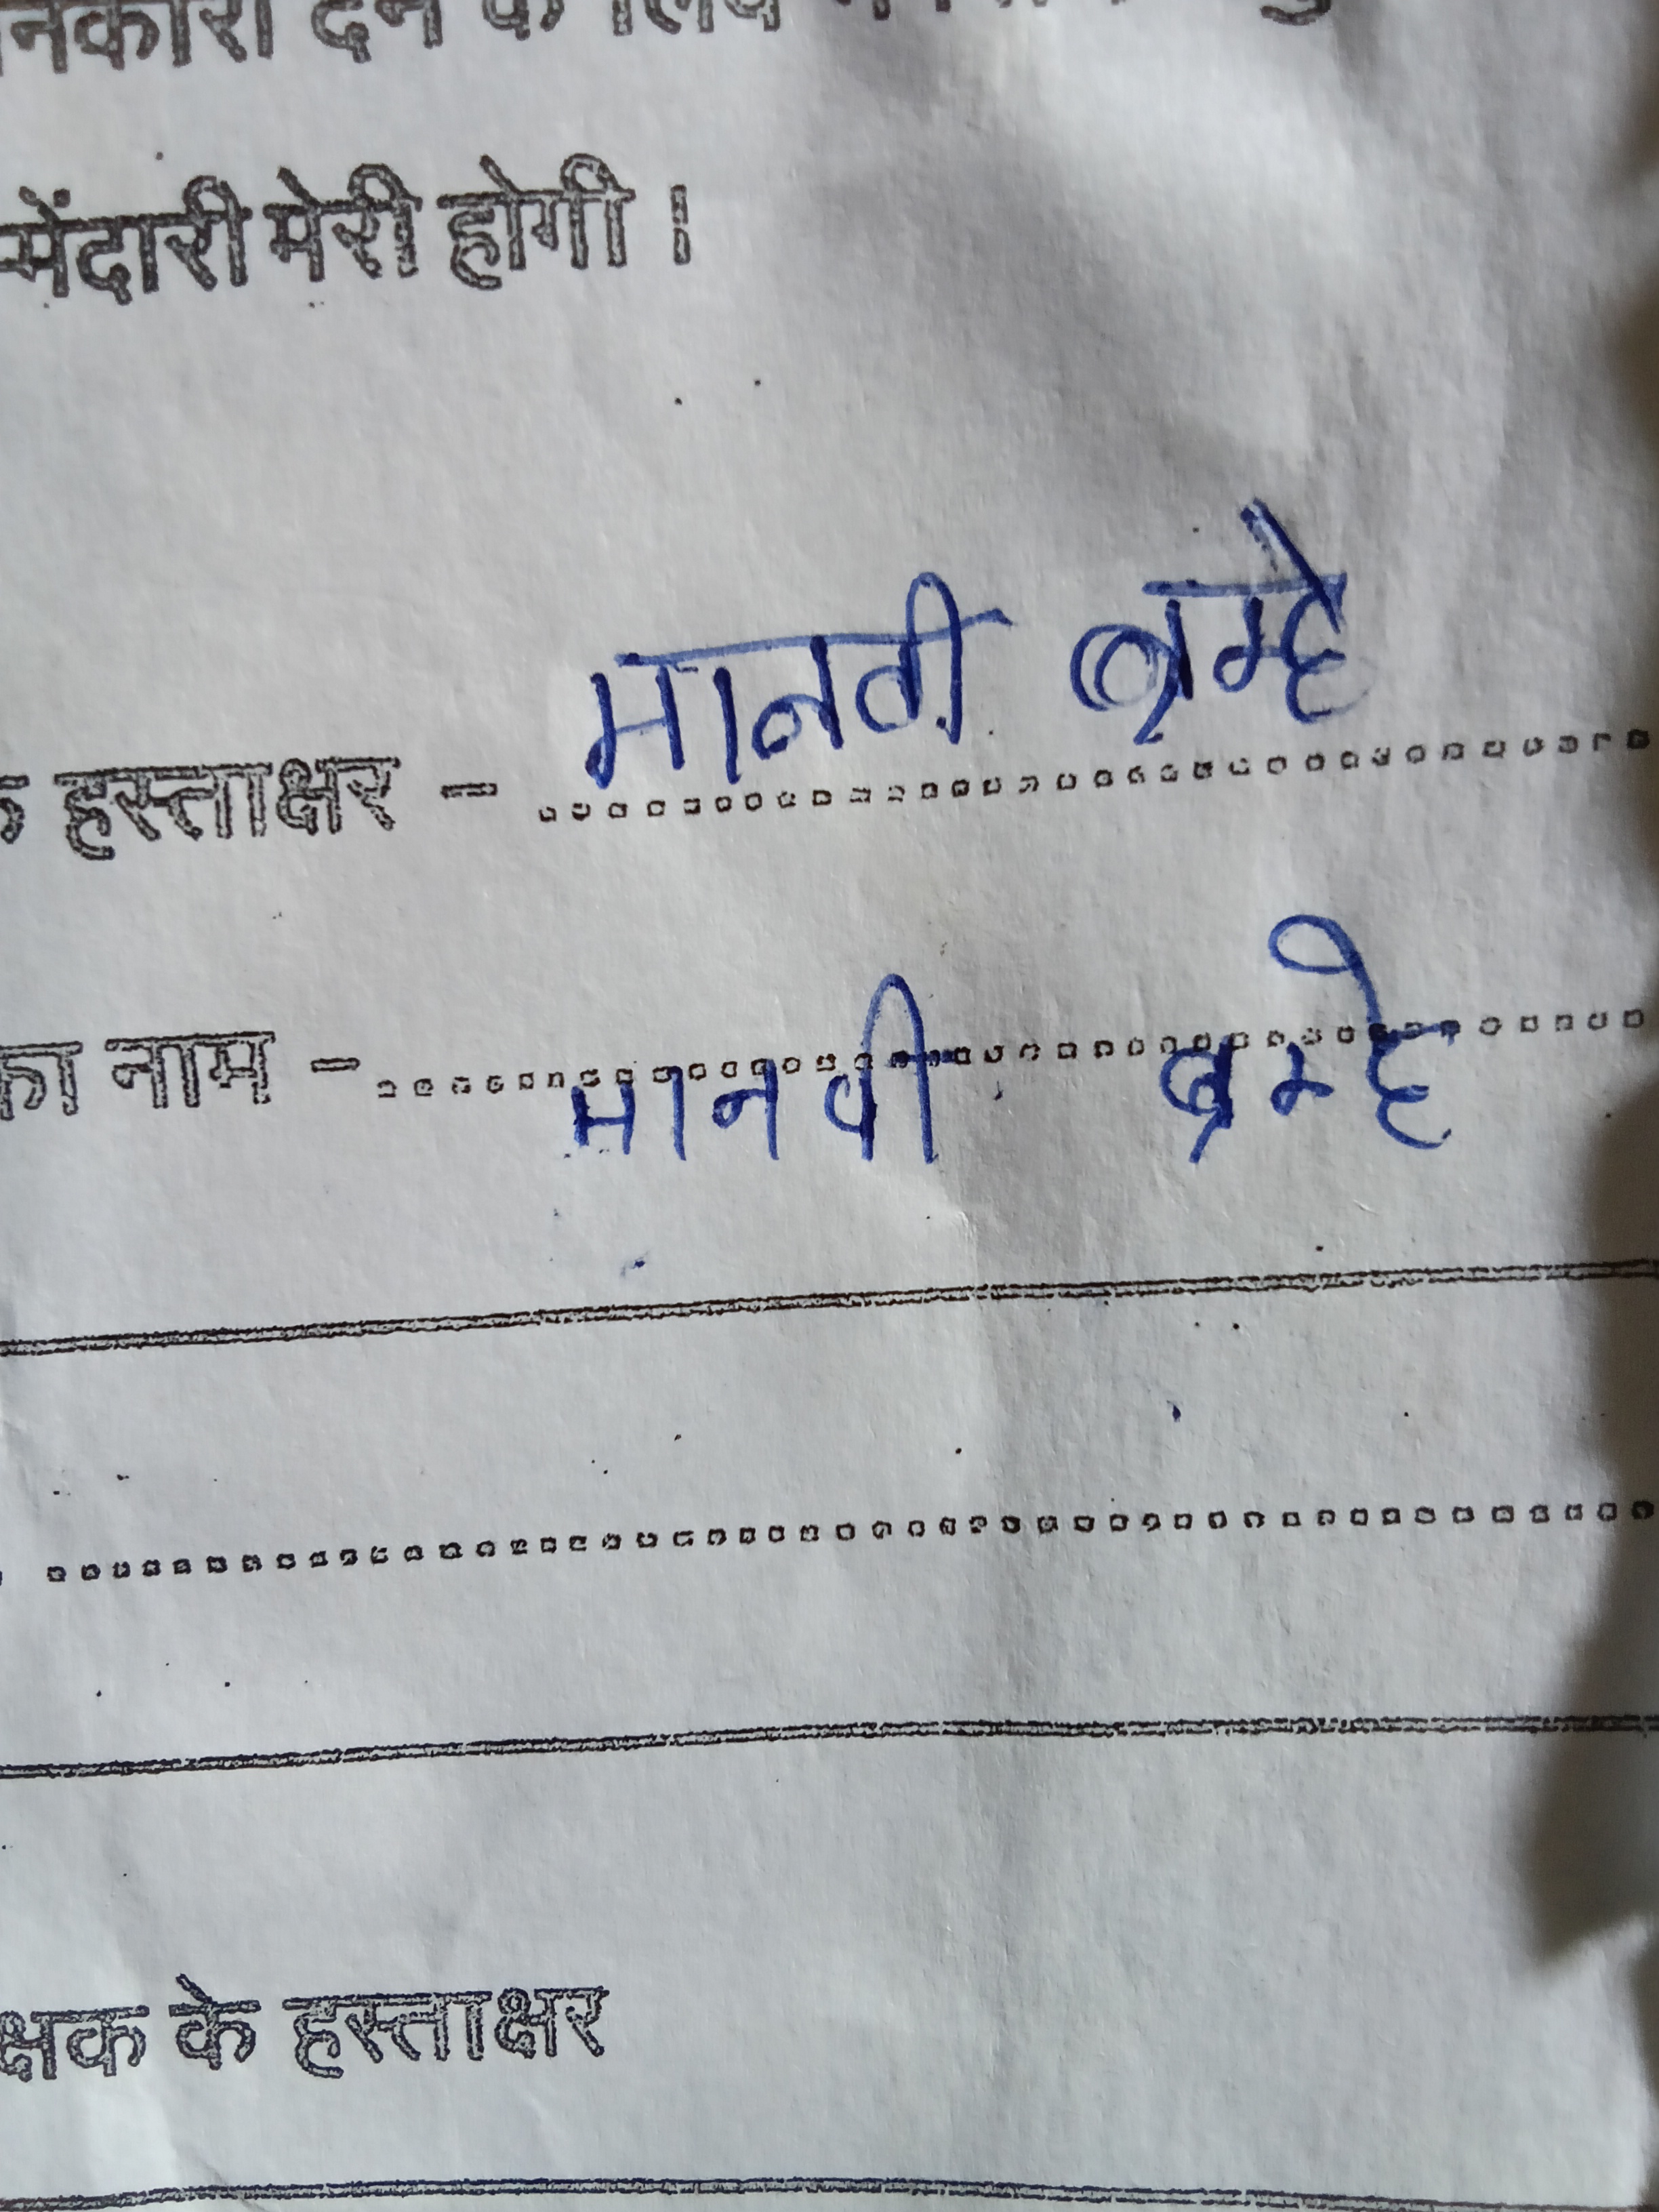 नकारी देने के लिये
मेंदारी मेरी होगी ।
के हस्ताक्षर - मानवी ब्रम्हे
का नाम - मानवी ब्रम्हे
क्षक के हस्ताक्षर